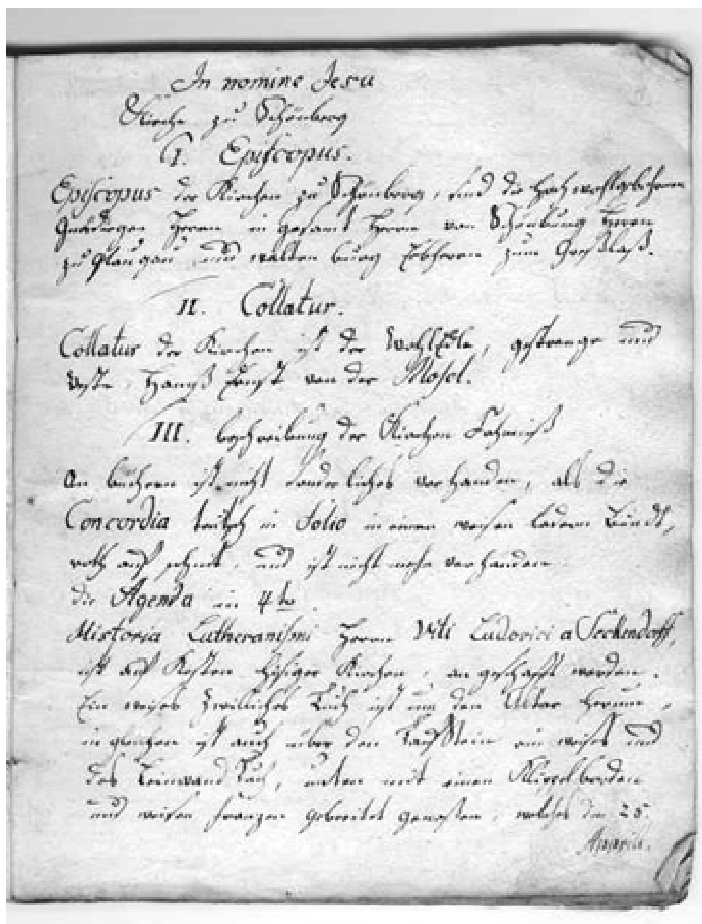 In nomine Jesu
Kirche zu Schönberg
I. Episcopus.
Episcopus der Kirchen zu Schönberg, sind die Hochwohlgebohrnen
Gnädigen Herren in gesamt Herren von Schönburg Herren
zu Glauchau und Waldenburg Erbherren zum
II. Collatur.
Collatur der Kirchen ist der WohlEdle, gestrenge und
Veste, Hannß Ernst von der Mosel.
III. beschreibung der Kirchen
An büchern ist nicht sonderliches vorhanden, als die
Concordia teutsch in Folio in einen weisen Ledern Bande,
roth auf schnit, und ist nicht mehr vorhanden
die Agenda in 4to
Historia Lutheranismi Herrn Viti Ludovici a Seckendorff,
ist auf Kosten hisiger Kirchen, an geschafft worden.
Ein weises Zwilliches Tuch ist um den Altar herum,
in gleichen ist auch über den Taufstein ein weises
Leinwand Tuch, unten mit einen
und weisen franzen welches den 25.
Aprill.